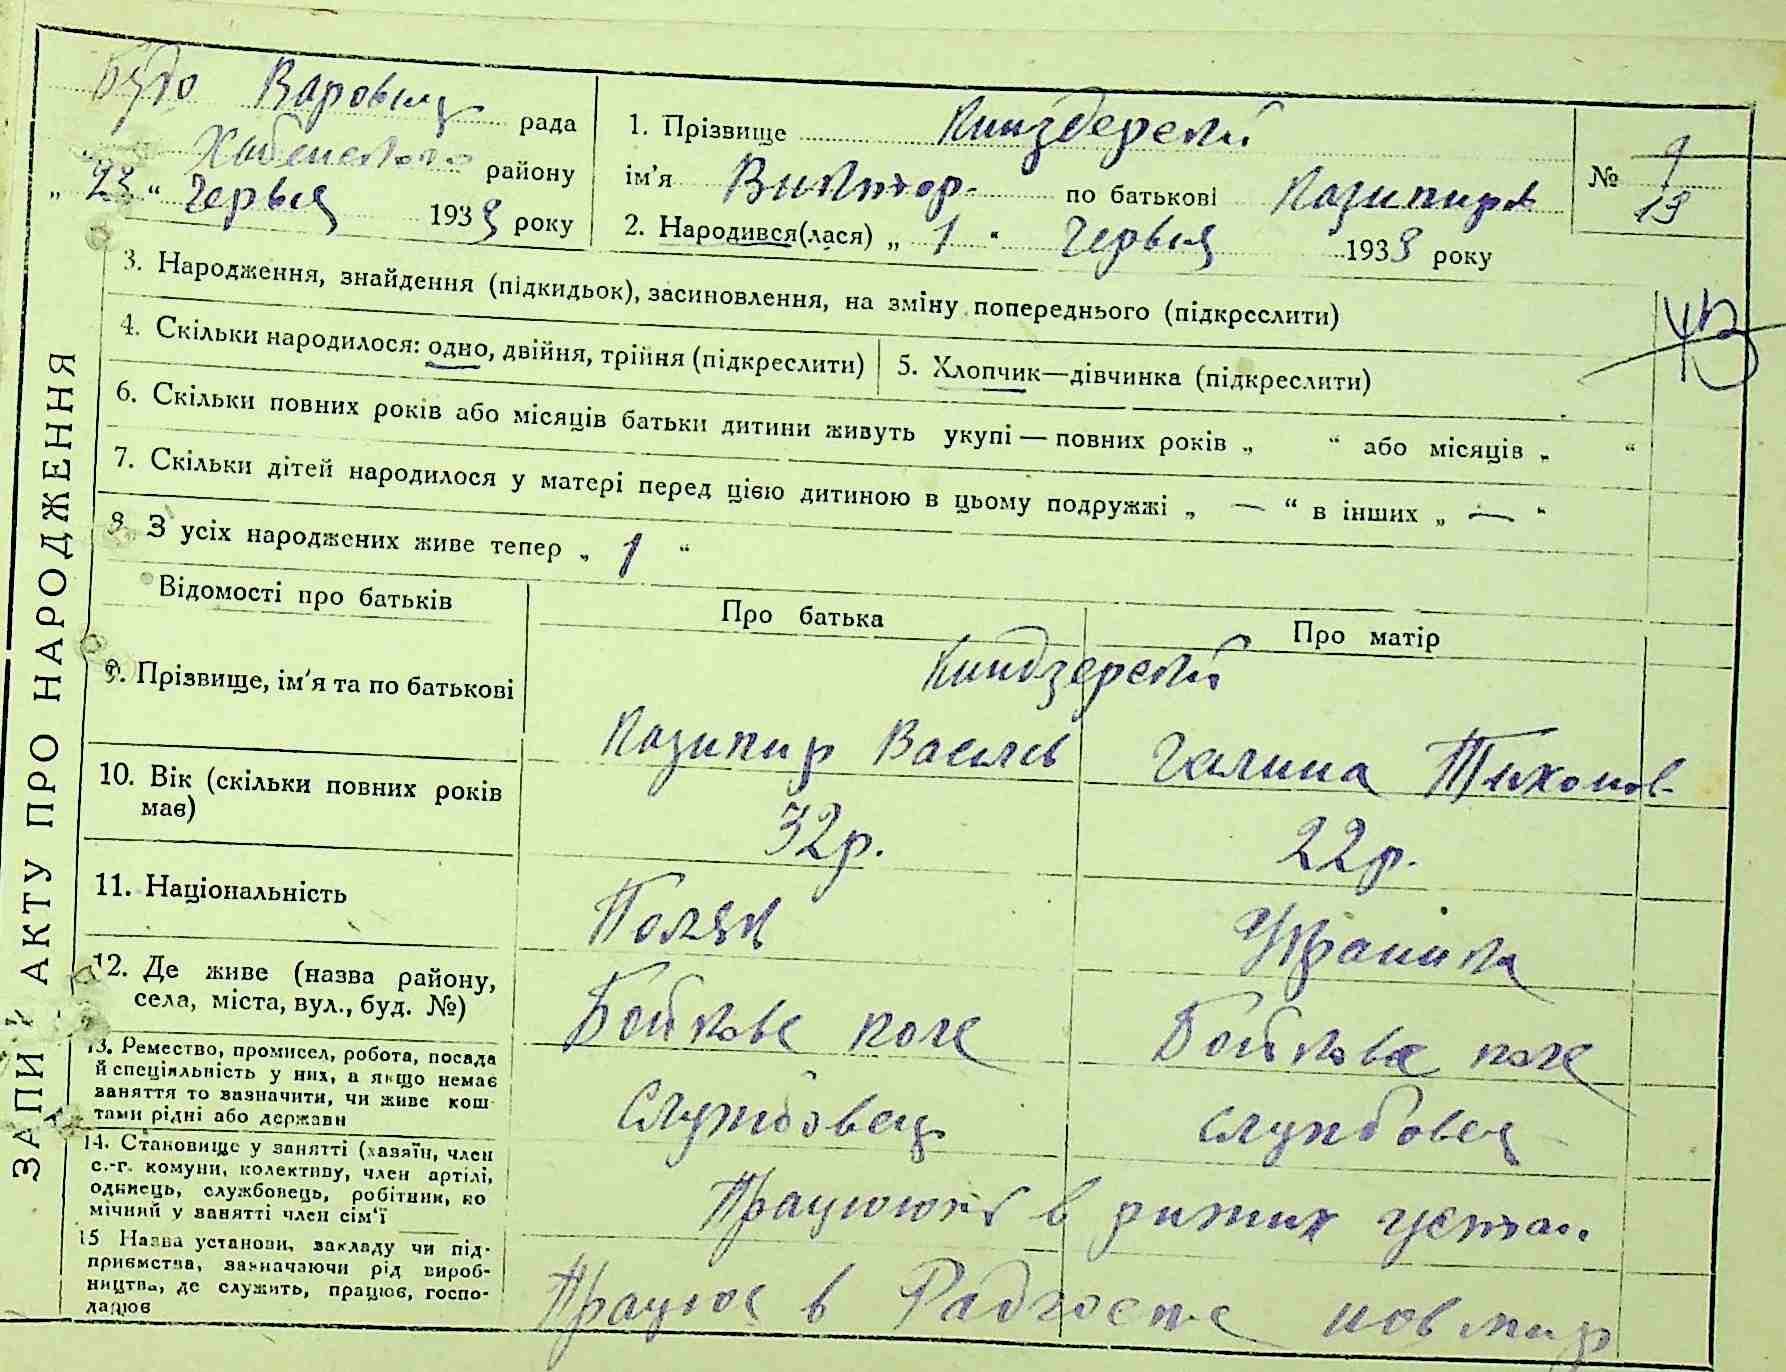 ЗАПИС АКТУ ПРО НАРОДЖЕННЯ
Будо Варовиц рада
Хабенского району
„ 23 “ Червця 1938 року
1. Прізвище Киндзерский
ім'я Виктор по батькові Казимиров
2. Народився(лася) „ 1 “ Червця 1938 року
№ 9
13
3. Народження, знайдення (підкидьок), засиновлення, на зміну попереднього (підкреслити)
4. Скільки народилося: одно, двійня, трійня (підкреслити)
5. Хлопчик—дівчинка (підкреслити)
6. Скільки повних років або місяців батьки дитини живуть укупі — повних років „ “ або місяців „ “
7. Скільки дітей народилося у матері перед цією дитиною в цьому подружжі „ — “ в інших „ — “
8. З усіх народжених живе тепер „ 1 “
Відомості про батьків
Про батька
Про матір
9. Прізвище, ім'я та по батькові
Киндзерский
Казимир Василів
Галина Тихонов
10. Вік (скільки повних років
має)
32р.
22р.
11. Національність
Поляк
Украинка
12. Де живе (назва району,
села, міста, вул., буд. №)
Бойкове поле
Бойкове поле
13. Ремество, промисел, робота, посада
й спеціяльність у них, а якщо немає
заняття то зазначити, чи живе кош-
тами рідні або держави
службовец
службовец
14. Становище у занятті (хазяїн, член
с.-г. комуни, колективу, член артілі,
одинець, службовець, робітник, по
мічний у занятті член сім'ї
Працюють в
15 Назва установи, закладу чи під-
приємства, зазначаючи рід вироб-
ництва, де служить, працює, госпо-
дарює
Працює в Радгоспе